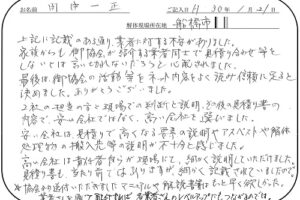 お名前
ご記入日 H 30年 1月 21日
解体現場所在地 船橋市
上記に記載のある通り、業者に対する不安がありました。
家族からも御協会が紹介する業者同士で見積り合せ等を
しないでは高くなりはしないだろうと心配されました。
最後は、御協会の活動等をネット内容をよく読み、依頼に定めると
決めました。ありがとうございました。
2社の担当の方と現場での立ち話と説明、その後の見積り書の
内容で、安い会社ではなく、高い会社を選びました。
安い会社は、見積りで高くなる要因の説明やアスベストや解体
処理物の搬入先等の説明が不十分と感じました。
高い会社は責任者自らが現場にて、細かく説明していただけました。
見積書も、
協会から送付いただきましたマニュアルや解説書はもっと早く欲しかった。